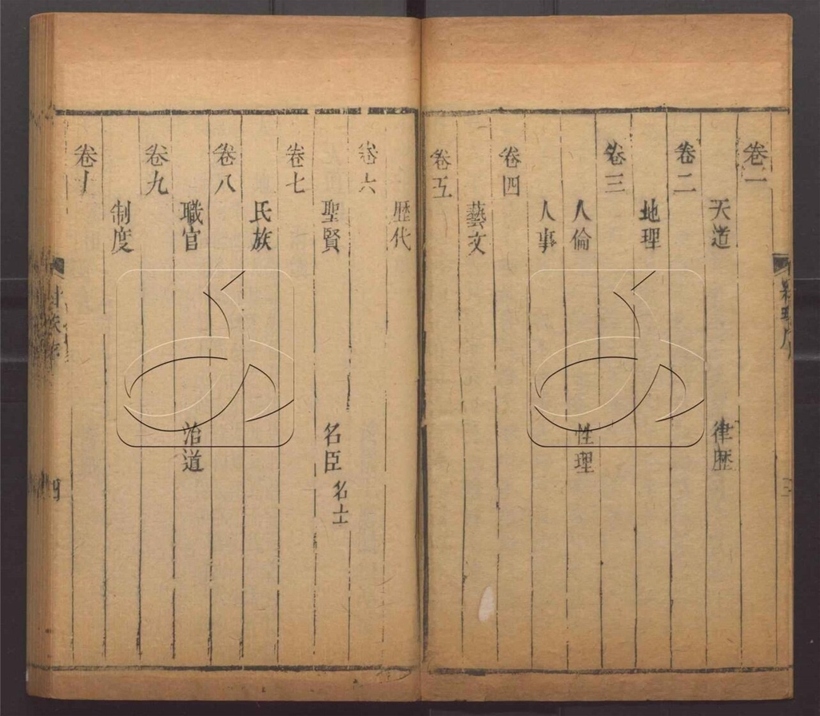 卷一
天道 律歷
卷二
地理
卷三
人倫 性理
人事
卷四
藝文
卷五
歷代
卷六
聖賢 名臣 名士
卷七
氏族
卷八
職官 治道
卷九
制度
卷十